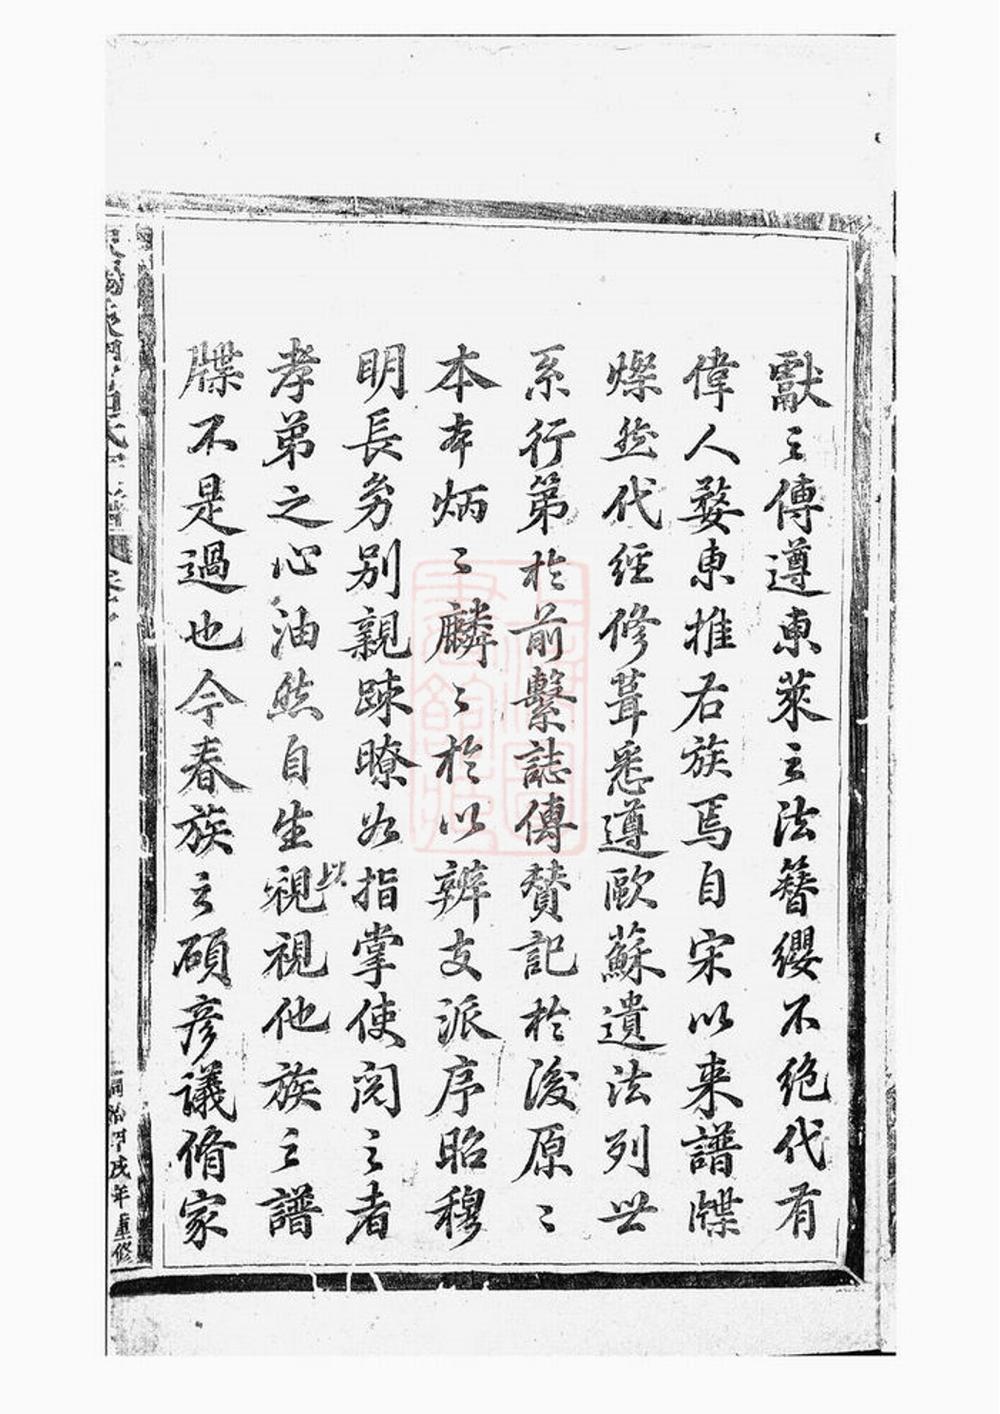 獻之傳遵東萊之法簪纓不絶代有
偉人婺東推右族焉自宋以来譜牒
燦然代經修葺悉遵歐蘇遺法列世
系行第於前繫誌傳賛記於後原〻
本本炳〻麟〻於以辨支派序昭穆
明長㓜别親踈瞭如指掌使閲之者
孝弟之心油然自生視以視他族之譜
牒不是過也今春族之碩彦議脩家
同治甲戌年重修